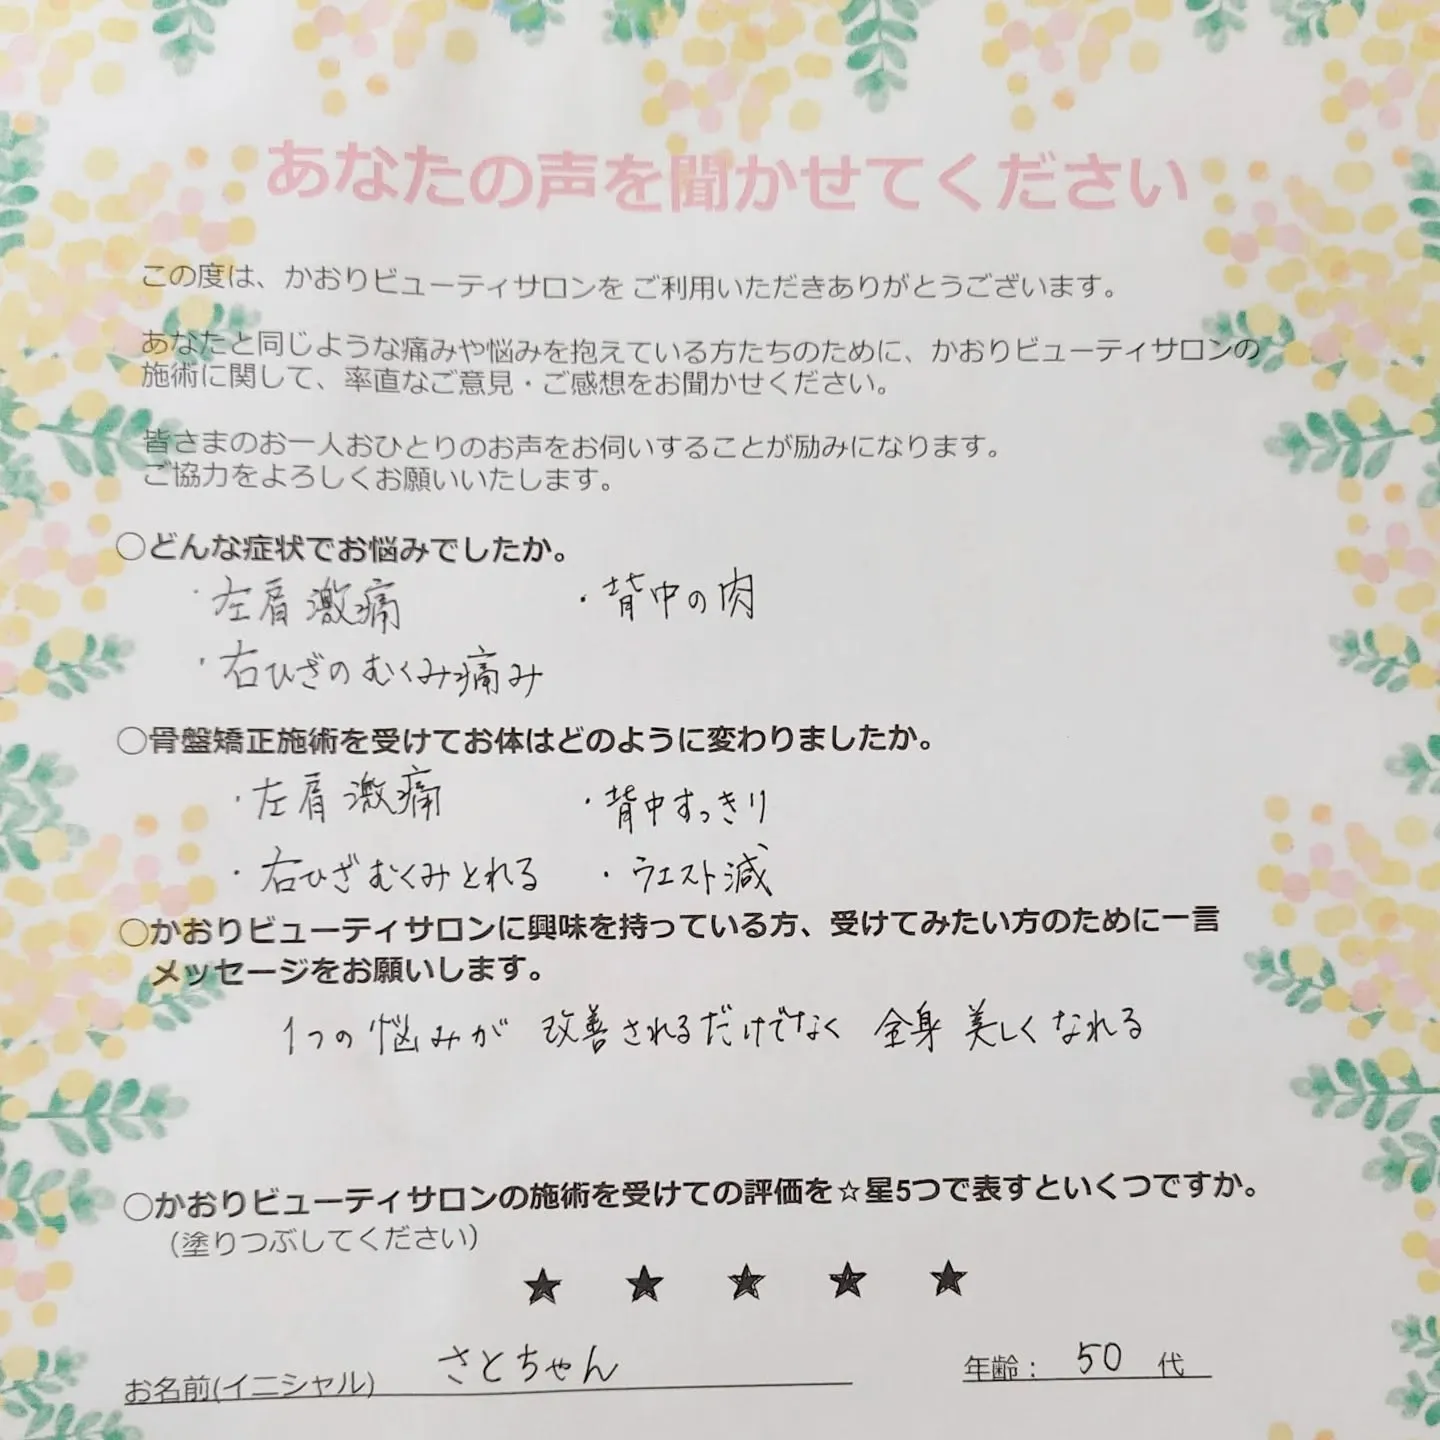 あなたの声を聞かせてください
この度は、かおりビューティサロンを ご利用いただきありがとうございます。
あなたと同じような痛みや悩みを抱えている方たちのために、かおりビューティサロンの
施術に関して、率直なご意見・ご感想をお聞かせください。
皆さまのお一人おひとりのお声をお伺いすることが励みになります。
ご協力をよろしくお願いいたします。
○どんな症状でお悩みでしたか。
・左肩激痛 ・背中の肉
・右ひざのむくみ痛み
○骨盤矯正施術を受けてお体はどのように変わりましたか。
・左肩激痛 ・背中すっきり
・右ひざむくみとれる ・ウエスト減
○かおりビューティサロンに興味を持っている方、受けてみたい方のために一言
メッセージをお願いします。
1つの悩みが 改善されるだけでなく 全身 美しくなれる
○かおりビューティサロンの施術を受けての評価を☆星5つで表すといくつですか。
(塗りつぶしてください)
★ ★ ★ ★ ★
お名前(イニシャル) さとちゃん 年齢: 50 代